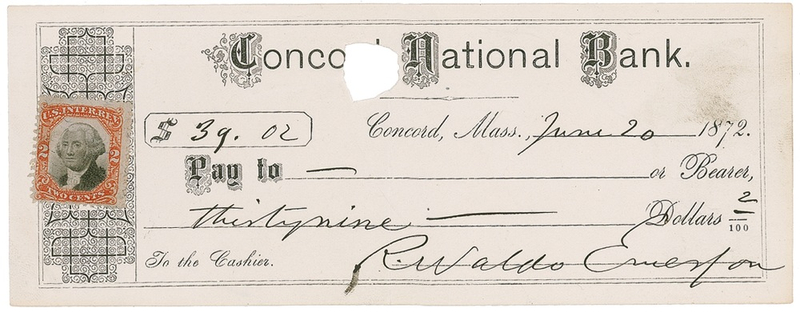 Concord National Bank.
U.S. INTER. REV.
2 2
TWO CENTS
$ 39. 02
Concord, Mass., June 20 1872.
Pay to — or Bearer,
thirtynine — Dollars 2/100
To the Cashier. R. Waldo Emerson